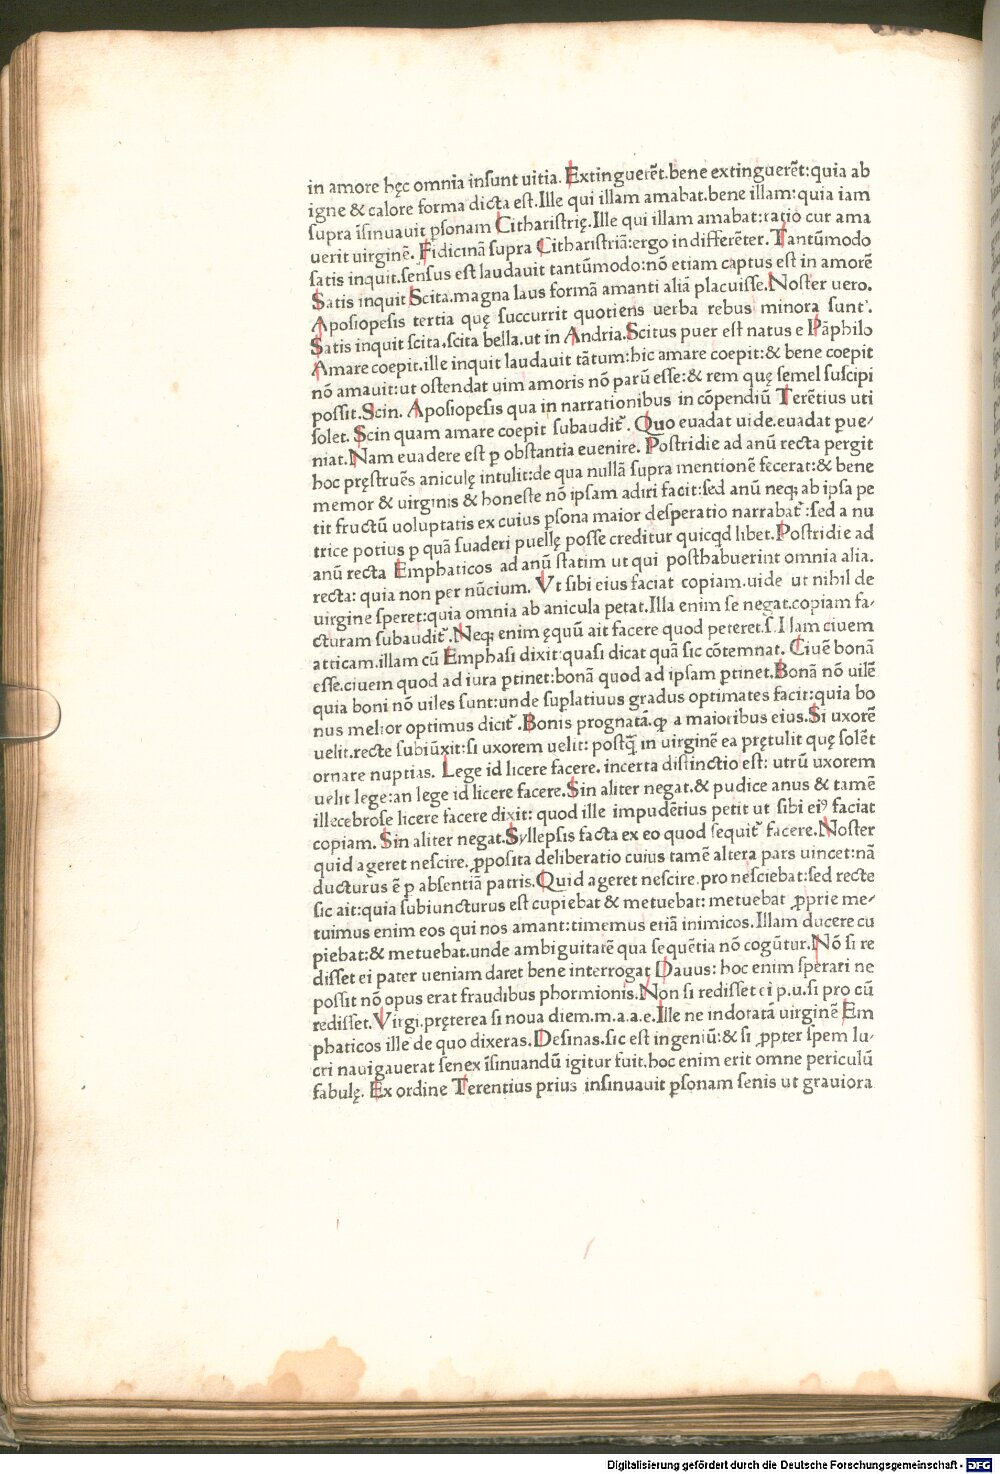 in amore hęc omnia insunt uitia. Extinguerēt.bene extinguerēt:quia ab
igne & calore forma dicta est.Ille qui illam amabat.bene illam:quia iam
supra īsinuauit ꝑsonam Citharistrię.Ille qui illam amabat:ratio cur ama
uerit uirginē. Fidicinā supra Citharistriā:ergo indifferēter. Tantūmodo
satis inquit.sensus est laudauit tantūmodo:nō etiam captus est in amorē
Satis inquit Scita.magna laus formā amanti aliā placuisse.Noster uero.
Aposiopesis tertia quę succurrit quotiens uerba rebus minora sunt.
Satis inquit scita.scita bella.ut in Andria.Scitus puer est natus e Pāphilo
Amare coepit.ille inquit laudauit tātum:hic amare coepit:& bene coepit
nō amauit:ut ostendat uim amoris nō parū esse:& rem quę semel suscipi
possit.Scin. Aposiopesis qua in narrationibus in cōpendiū Terētius uti
solet. Scin quam amare coepit subaudit᷑. Quo euadat uide.euadat pue-
niat.Nam euadere est ꝑ obstantia euenire. Postridie ad anū recta pergit
hoc pręstruēs aniculę intulit:de qua nullā supra mentionē fecerat:& bene
memor & uirginis & honeste nō ipsam adiri facit:sed anū neqꝫ ab ipsa pe
tit fructū uoluptatis ex cuius ꝑsona maior desperatio narrabat᷑:sed a nu
trice potius ꝑ quā suaderi puellę posse creditur quicqd libet.Postridie ad
anū recta Emphaticos ad anū statim ut qui posthabuerint omnia alia.
recta: quia non per nūcium. Vt sibi eius faciat copiam.uide ut nihil de
uirgine speret:quia omnia ab anicula petat.Illa enim se negat.copiam fa-
cturam subaudit᷑.Neqꝫ enim ęquū ait facere quod peteret.s.Illam ciuem
atticam.illam cū Emphasi dixit:quasi dicat quā sic cōtemnat. Ciuē bonā
esse.ciuem quod ad iura ꝑtinet:bonā quod ad ipsam ꝑtinet.Bonā nō uilē
quia boni nō uiles sunt:unde suplatiuus gradus optimates facit:quia bo
nus melior optimus dicit᷑.Bonis prognatā.ꝙ a maioribus eius.Si uxorē
uelit.recte subiūxit:si uxorem uelit: postq̄ in uirginē ea prętulit quę solēt
ornare nuptias. Lege id licere facere. incerta distinctio est: utrū uxorem
uelit lege:an lege id licere facere.Sin aliter negat.& pudice anus & tamē
illecebrose licere facere dixit: quod ille impudētius petit ut sibi eiꝰ faciat
copiam. Sin aliter negat.Syllepsis facta ex eo quod sequit᷑ facere.Noster
quid ageret nescire.ꝓposita deliberatio cuius tamē altera pars uincet:nā
ducturus ē ꝑ absentiā patris.Quid ageret nescire.pro nesciebat:sed recte
sic ait:quia subiuncturus est cupiebat & metuebat: metuebat ꝓprie me-
tuimus enim eos qui nos amant:timemus etiā inimicos.Illam ducere cu
piebat:& metuebat.unde ambiguitatē qua sequētia nō cogūtur.Nō si re
disset ei pater ueniam daret bene interrogat Dauus: hoc enim sperari ne
possit nō opus erat fraudibus phormionis.Non si redisset ei p.u.si pro cū
redisset.Virgi.pręterea si noua diem.m.a.a.e.Ille ne indotatā uirginē Em
phaticos ille de quo dixeras.Desinas.sic est ingeniū:& si ꝓpter spem lu-
cri nauigauerat senex īsinuandū igitur fuit.hoc enim erit omne periculū
fabulę. Ex ordine Terentius prius insinuauit ꝑsonam senis ut grauiora
Digitalisierung gefördert durch die Deutsche Forschungsgemeinschaft - DFG